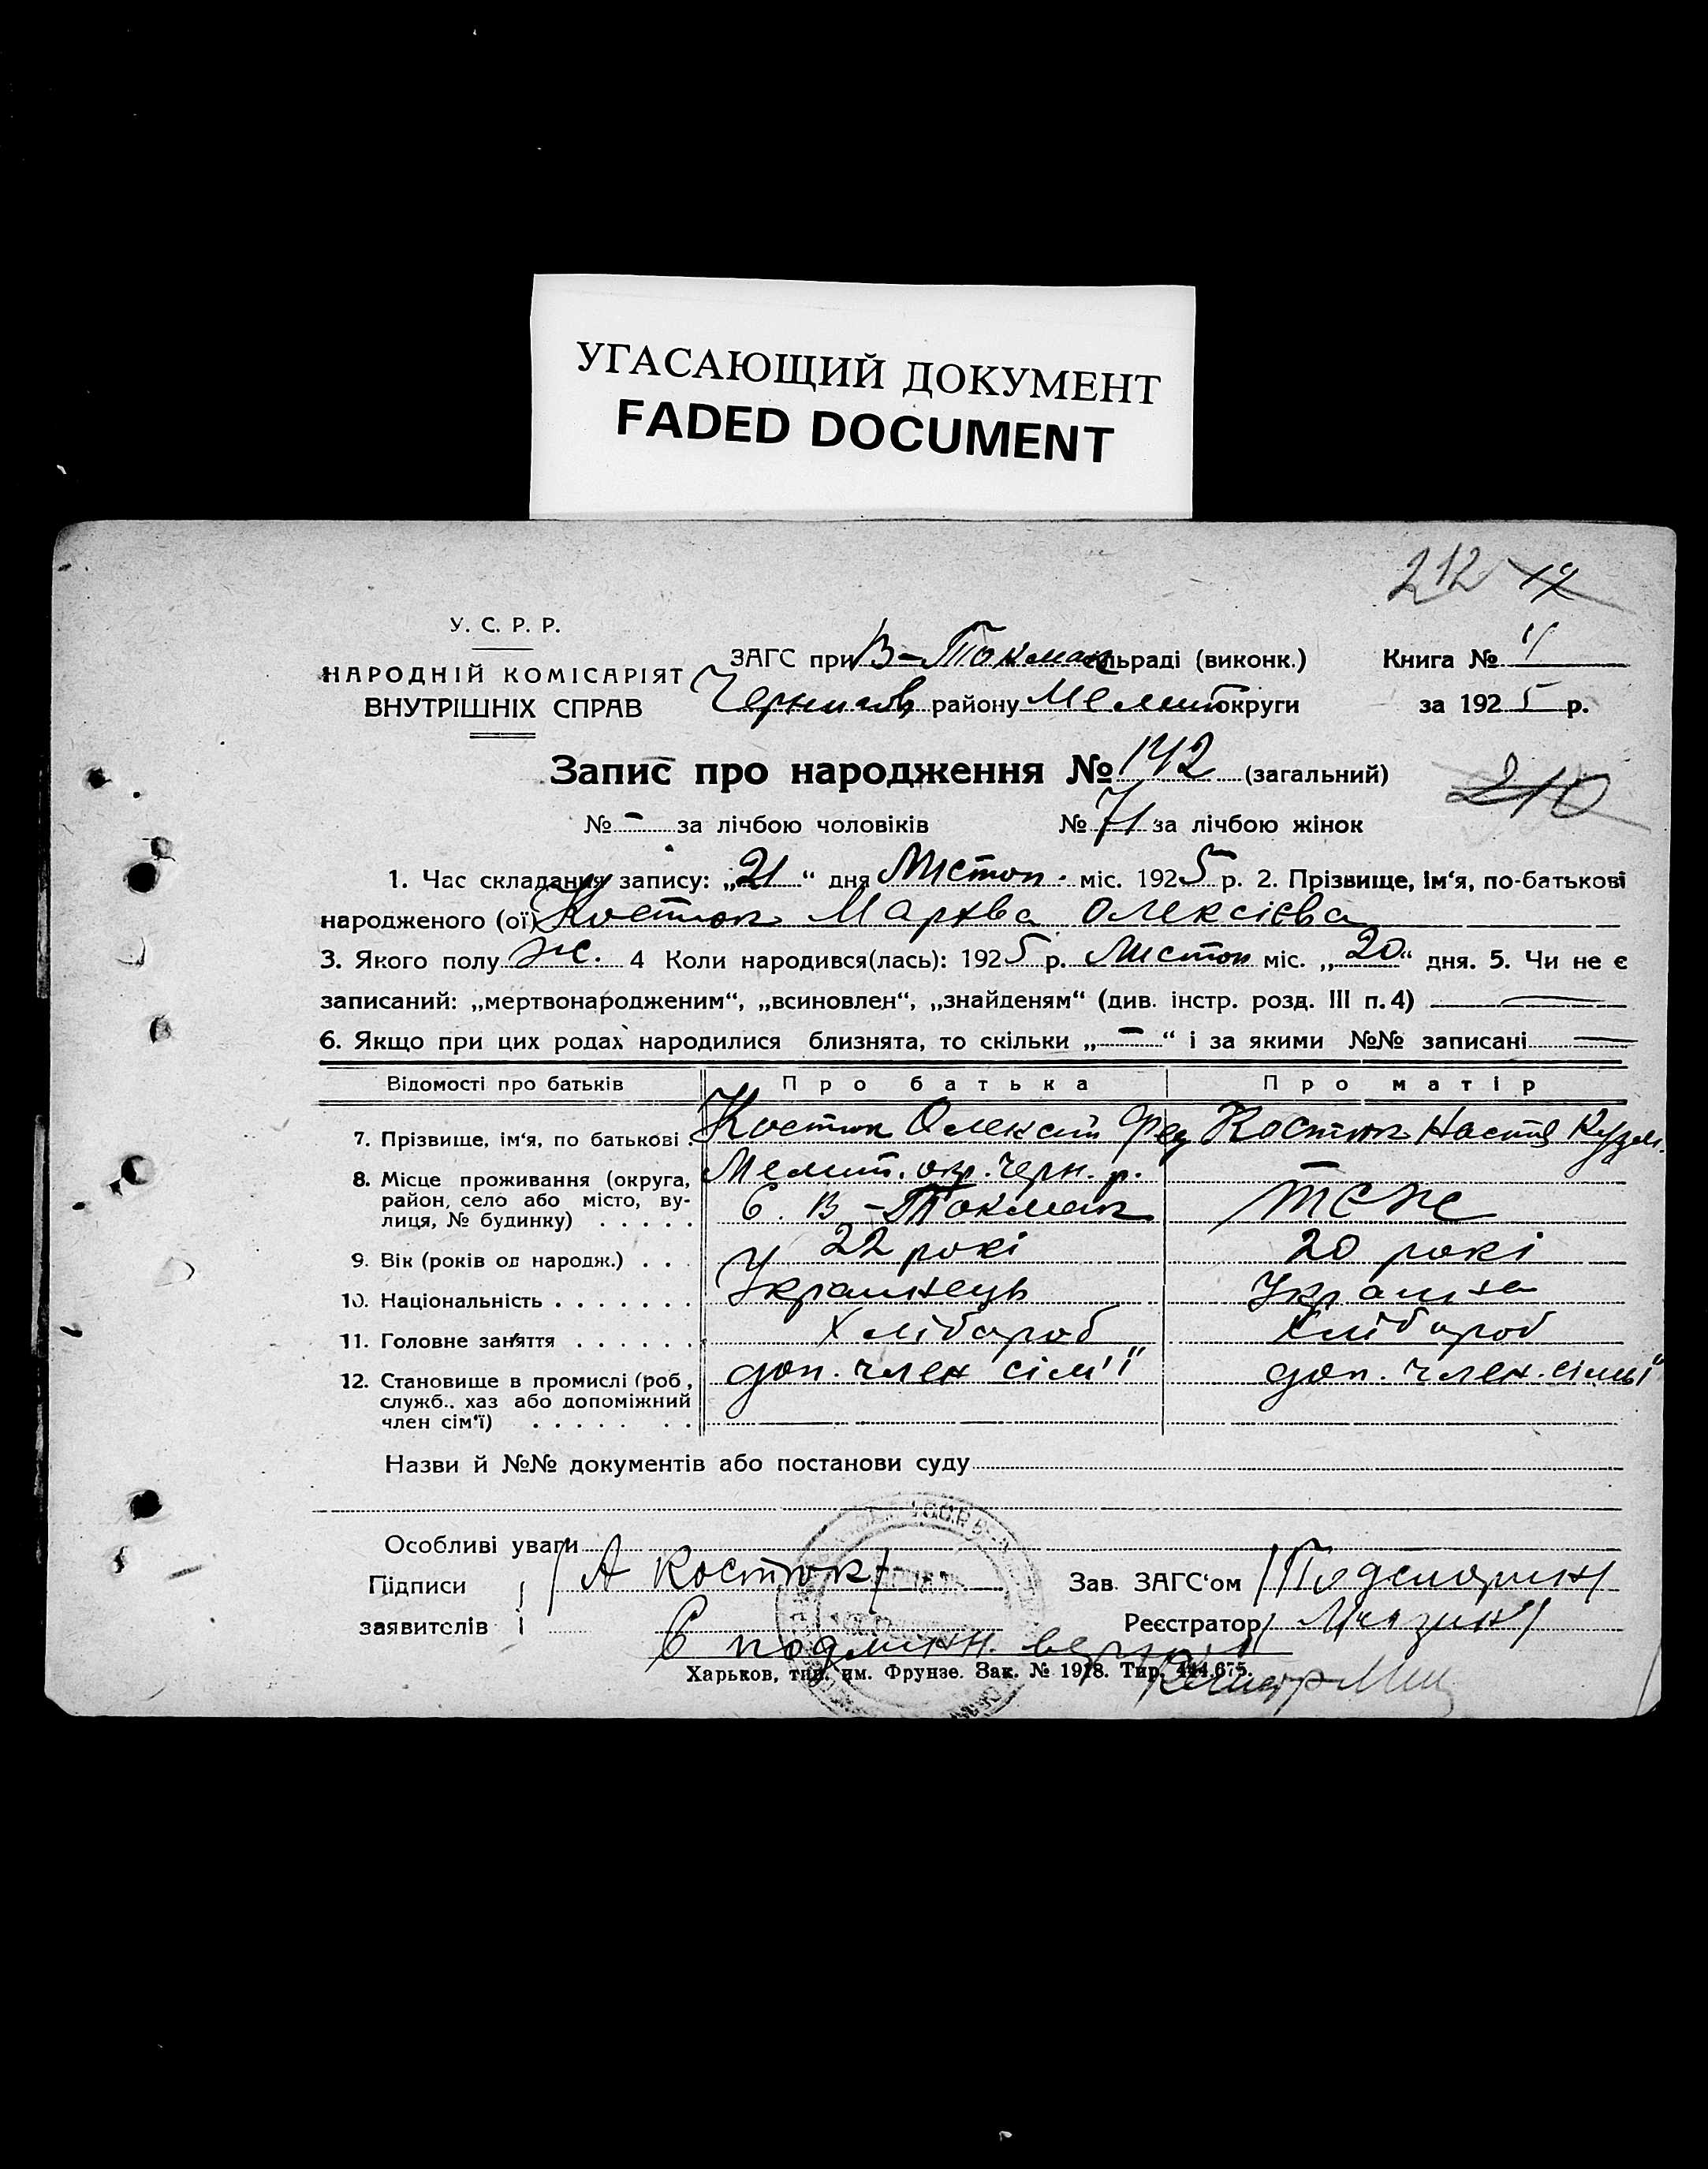 УГАСАЮЩИЙ ДОКУМЕНТ
FADED DOCUMENT
212
У. С. Р. Р.
НАРОДНІЙ КОМІСАРІЯТ
ВНУТРІШНІХ СПРАВ
ЗАГС при В-Токмак сільраді (виконк.) Книга №
Чернигов району Мелит округи за 1925 р.
Запис про народження № 142 (загальний)
210
№ - за лічбою чоловіків № 71 за лічбою жінок
1. Час складання запису: „21“ дня Листоп. міс. 1925 р. 2. Прізвище, ім‘я, по-батькові
народженого (ої) Костюк Марфа Олексієва
3. Якого полу ж. 4 Коли народився(лась): 1925 р. Листоп міс. „20“ дня. 5. Чи не є
записаний: „мертвонародженим“, „всиновлен“, „знайденям“ (див. інстр. розд. III п. 4) —
6. Якщо при цих родах народилися близнята, то скільки „—“ і за якими №№ записані —
Відомості про батьків Про батька Про матір
7. Прізвище, ім‘я, по батькові . Костюк Олексій Фед Костюк Настя Кузм.
8. Місце проживання (округа, район, село або місто, вулиця, № будинку) . . . . . Мелит. окр. Черн. р.
С. В-Токмак теж
9. Вік (років од народж.) . . . 22 рокі 20 рокі
10. Національність . . . . . . . Українець Украінка
11. Головне заняття . . . . . . Хлібороб Хлібороб
12. Становище в промислі (роб., служб., хаз або допоміжний член сім‘ї) . . . . . . . доп. член сім'ї доп. член. сімьї
Назви й №№ документів або постанови суду
Особливі уваги
Підписи /А Костюк/ Зав. ЗАГС‘ом
заявителів Реєстратор
С подлинн. верно
Харьков, тип. им. Фрунзе. Зак. № 1918. Тир. 444.675.